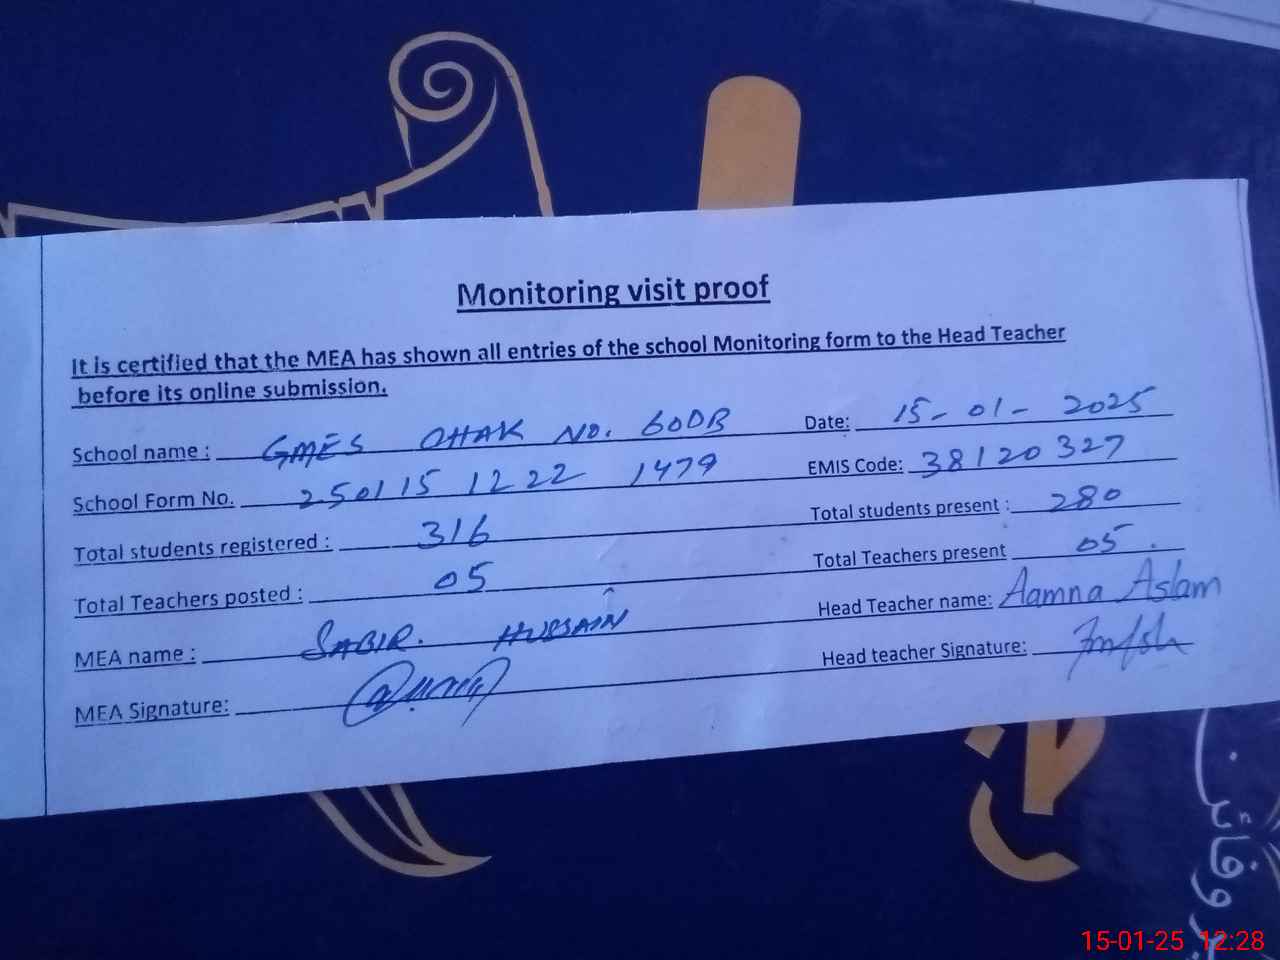 Monitoring visit proof
It is certified that the MEA has shown all entries of the school Monitoring form to the Head Teacher
before its online submission.
School name : GMES CHAK NO. 60DB Date: 15-01-2025
School Form No. 250115 1222 1479 EMIS Code: 38120327
Total students registered : 316 Total students present : 280
Total Teachers posted : 05 Total Teachers present 05.
MEA name : SABIR. HUSSAIN Head Teacher name: Aamna Aslam
MEA Signature: Head teacher Signature:
15-01-25 12:28